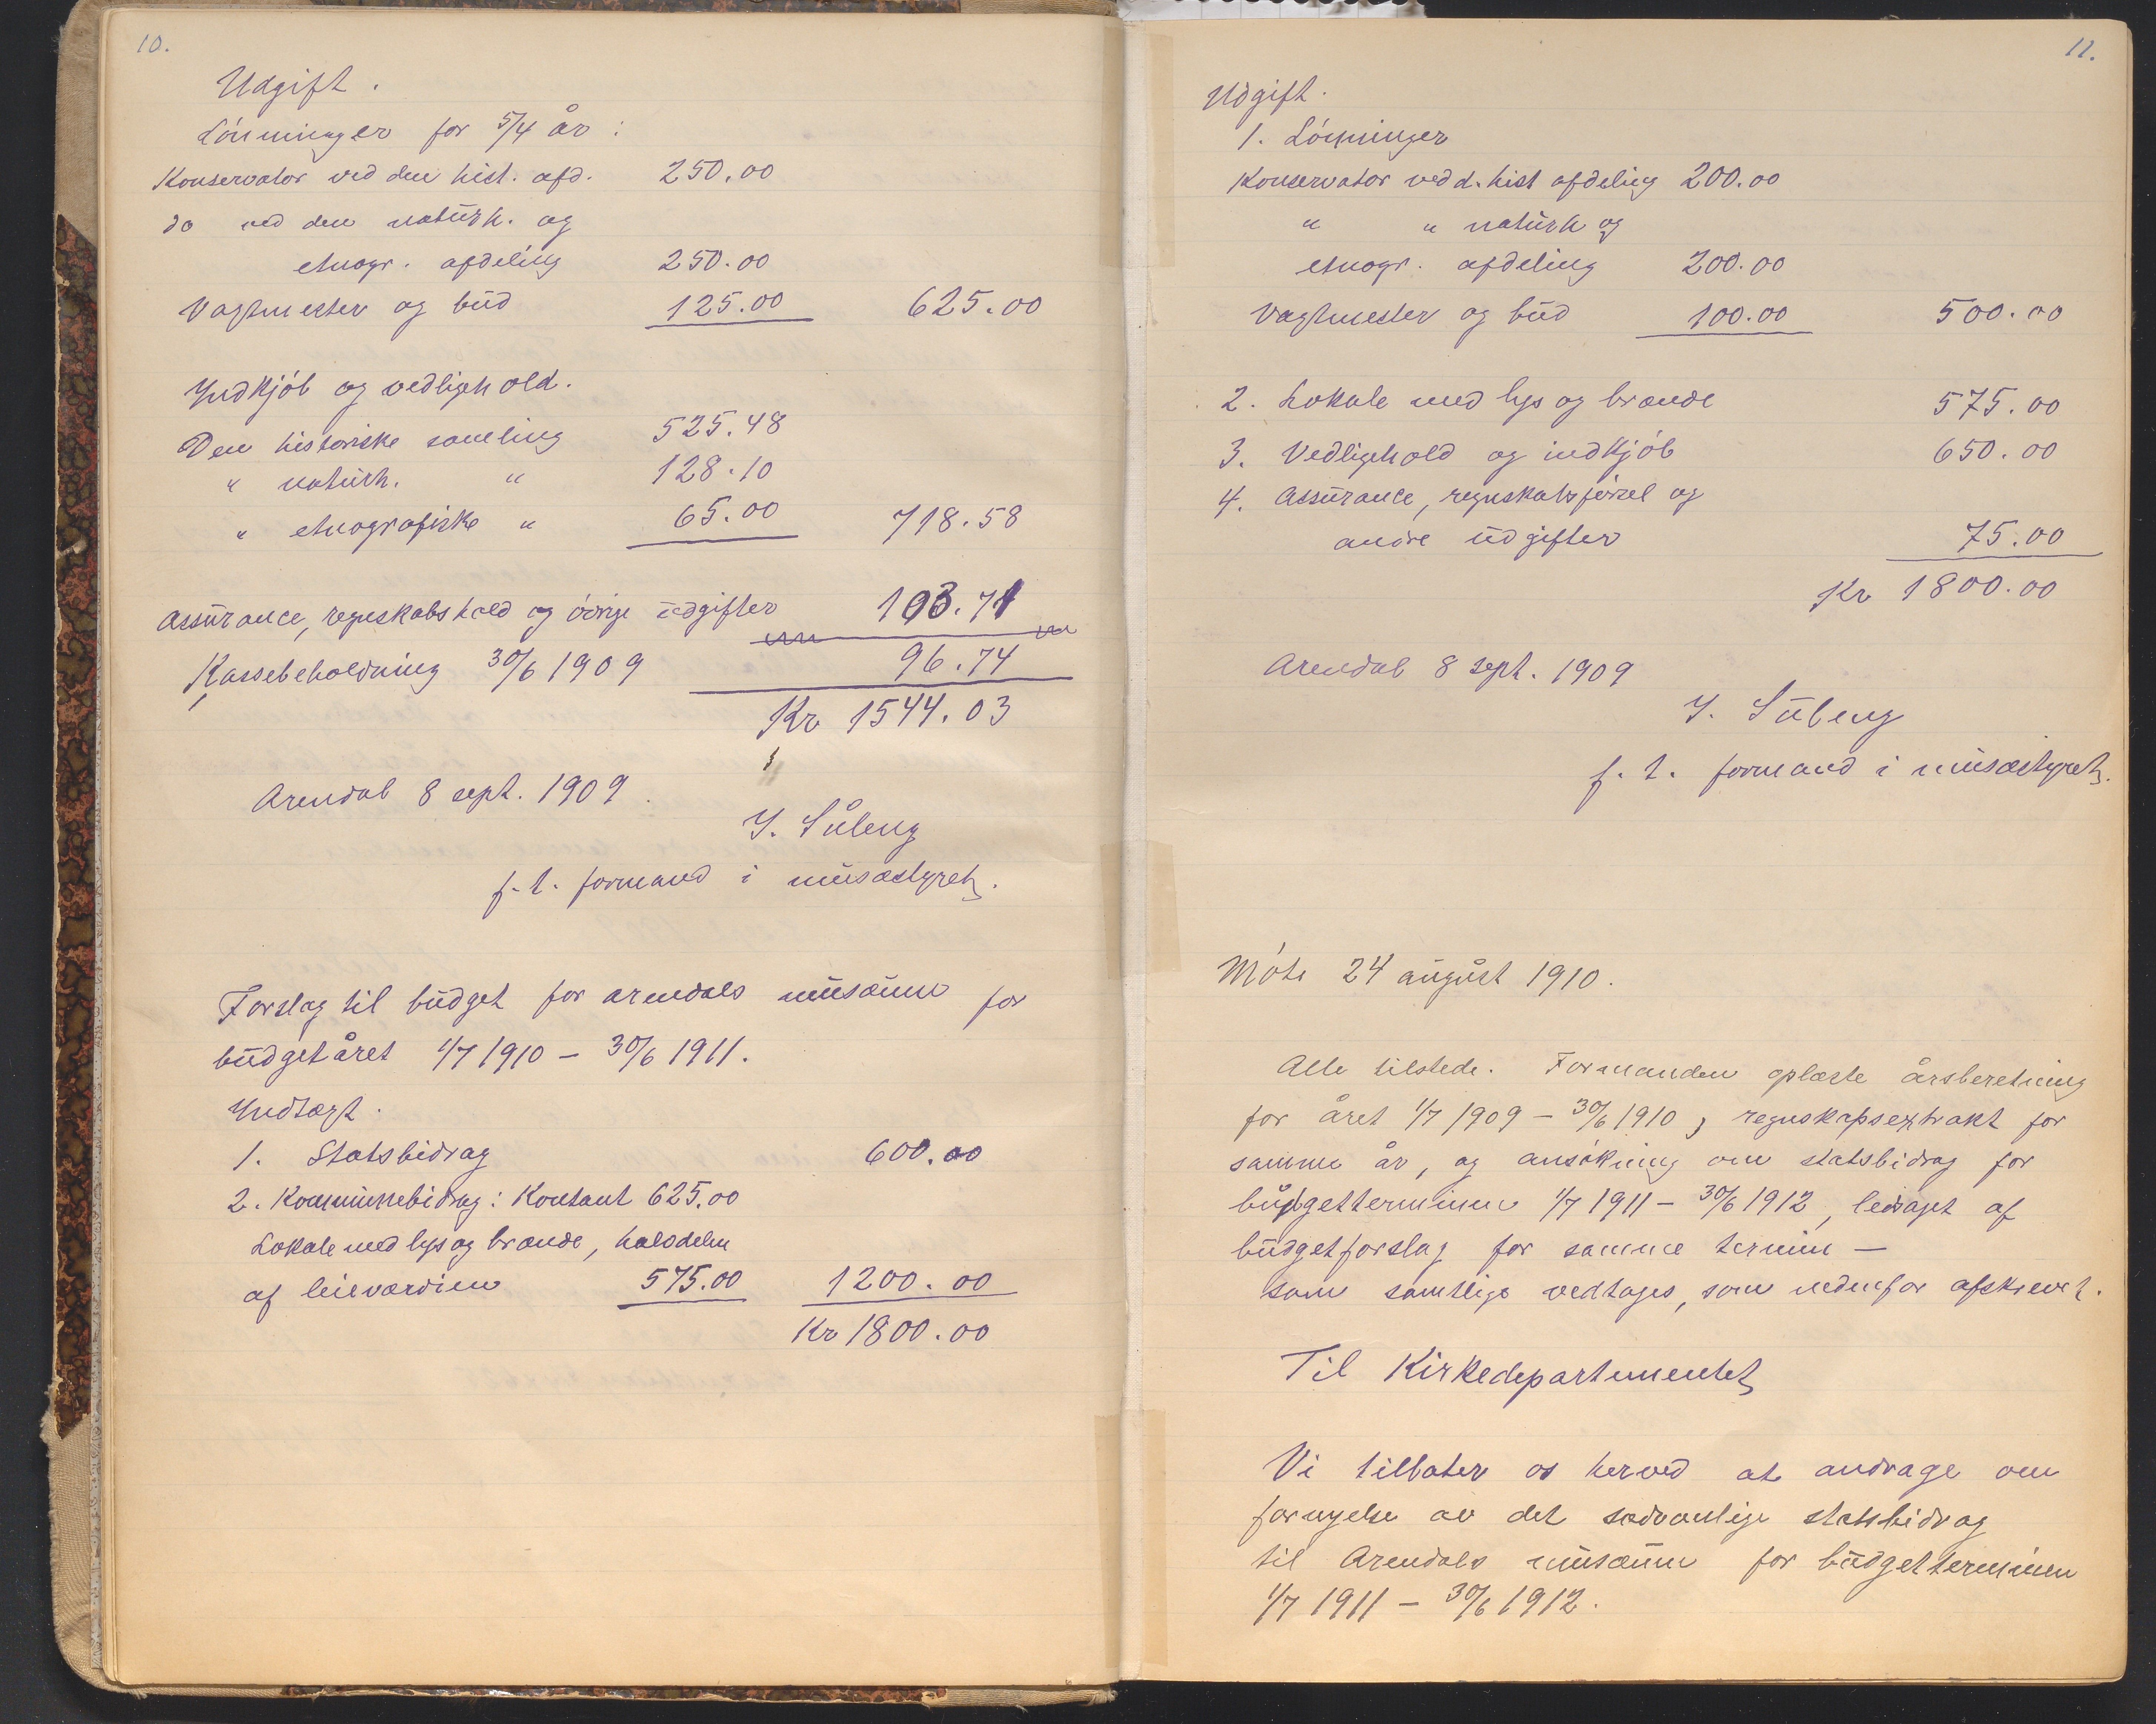 10.
Udgift.
Lönninger for 5/4 år:
Konservator ved den hist. afd. 250.00
do ved den naturh. og
etnogr. afdeling 250.00
Vagtmester og bud 125.00 625.00
Indkjöb og vedligehold.
Den historiske samling 525.48
" naturh. " 128.10
" etnografiske " 65.00 718.58
Assurance, regnskabshold og övrige udgifter 103.71
Kassebeholdning 30/6 1909 96.74
Kr 1544.03
Arendal 8 sept. 1909.
f. t. formand i musæstyret.
Forslag til budget for arendals musæum for
budgetåret 1/7 1910 - 30/6 1911.
Indtægt.
1. Statsbidrag 600.00
2. Kommunebidrag: Kontant 625.00
Lokale med lys og brænde, halvdelen
af leieværdien 575.00 1200.00
Kr 1800.00
11.
Udgift.
1. Lönninger
Konservator ved d. hist afdeling 200.00
" " naturh og
etnogr. afdeling 200.00
Vagtmester og bud 100.00 500.00
2. Lokale med lys og brænde 575.00
3. Vedligehold og indkjöb 650.00
4. Assurance, regnskabsförsel og
andre udgifter 75.00
Kr 1800.00
Arendal 8 sept. 1909
f. t. formand i musæstyret.
Möte 24 august 1910.
Alle tilstede. Formanden oplæste årsberetning
for året 1/7 1909 - 30/6 1910, regnskapsextrakt for
samme år, og ansökning om statsbidrag for
budgetterminen 1/7 1911 - 30/6 1912, ledsaget af
budgetforslag for samme termin -
som samtlige vedtages, som nedenfor afskrevet.
Til Kirkedepartementet
Vi tillater os herved at andrage om
fornyelse av det sædvanlige statsbidrag
til Arendals musæum for budgetterminen
1/7 1911 - 30/6 1912.